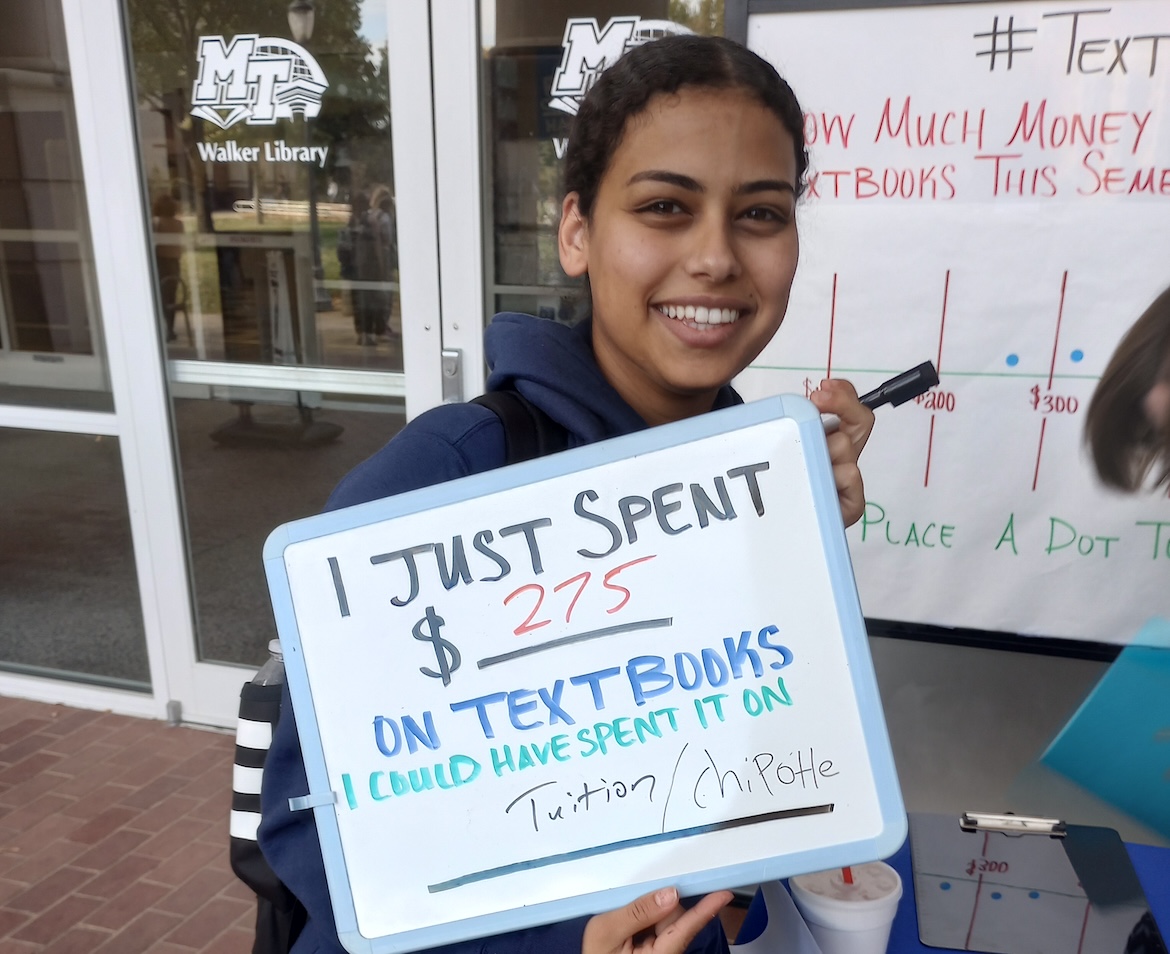 MT
Walker Library
MT
# TEXT
OW MUCH MONEY
XTBOOKS THIS SEME
$200
$300
PLACE A DOT
I JUST SPENT
$ 275
ON TEXTBOOKS
I COULD HAVE SPENT IT ON
Tuition/Chipotle
$300